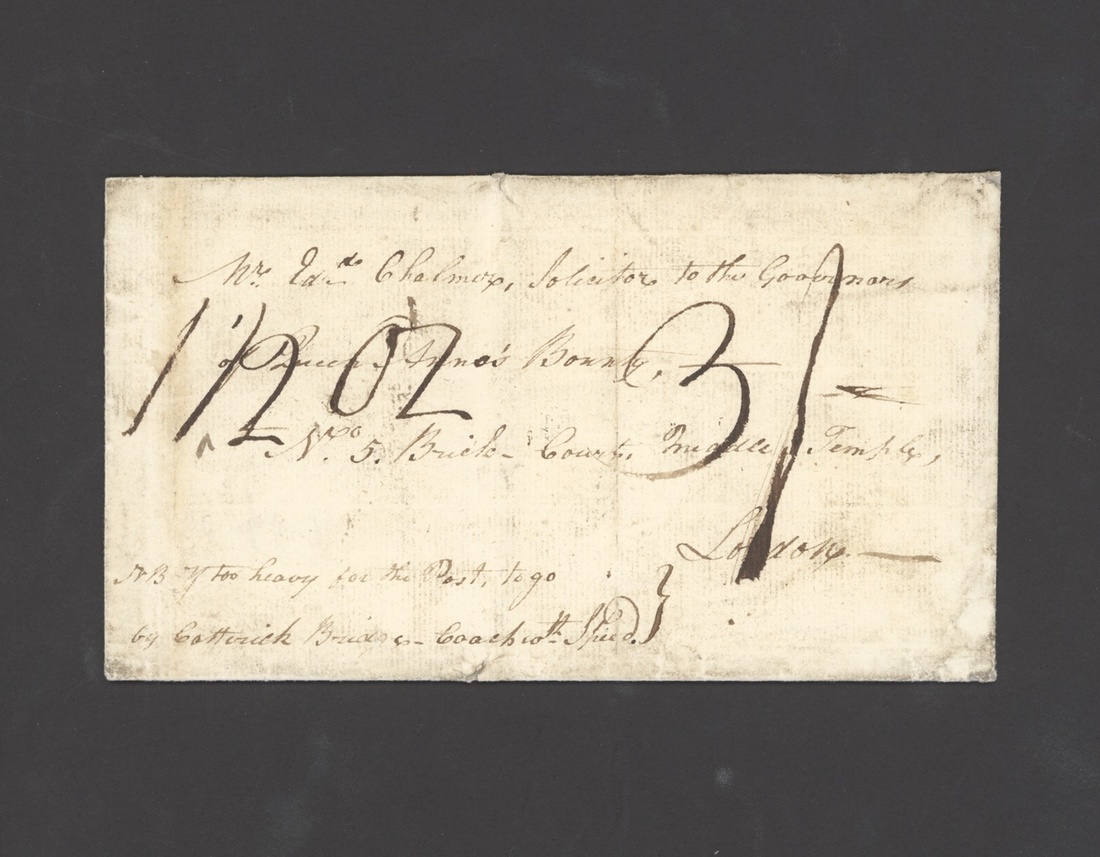 Mr. Edwd. Chalmer, Solicitor to the Governors
of Queen Anne's Bounty,
1 1/2 oz 3/
No. 5. Brick-Court, Middle Temple,
London
NB If too heavy for the Post, to go
by Catterick Bridge-Coach wth. Speed.